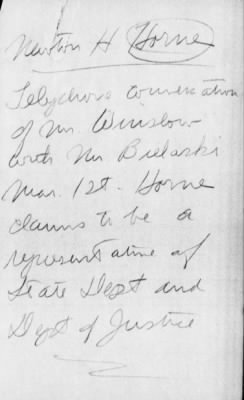 Newton H Horne
Telephone conversation
of Mr. Winslow
with Mr Bielaski
Mar. 1st. Horne
claims to be a
representative of
State Dept and
Dept of Justice